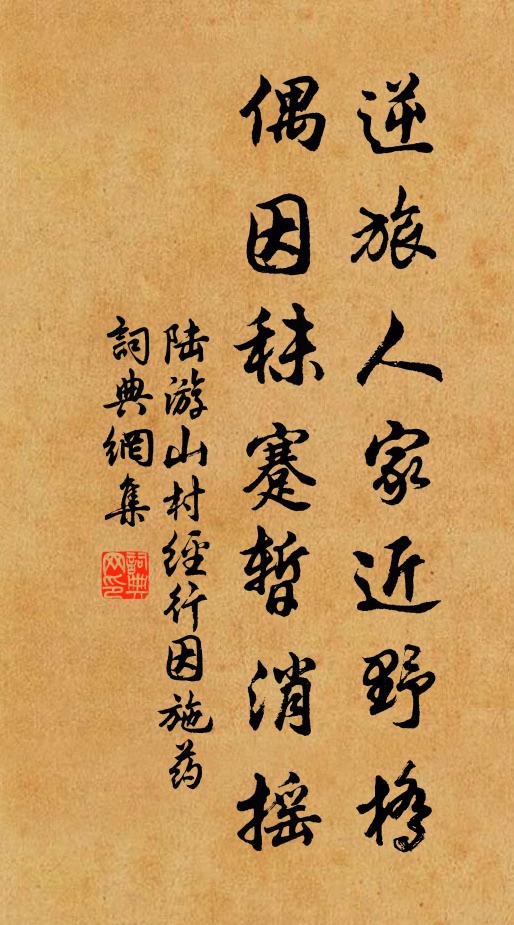 逆旅人家近野橋
偶因秣蹇暫消摇
陆游山村經行因施药
詞典網集
詞典網印